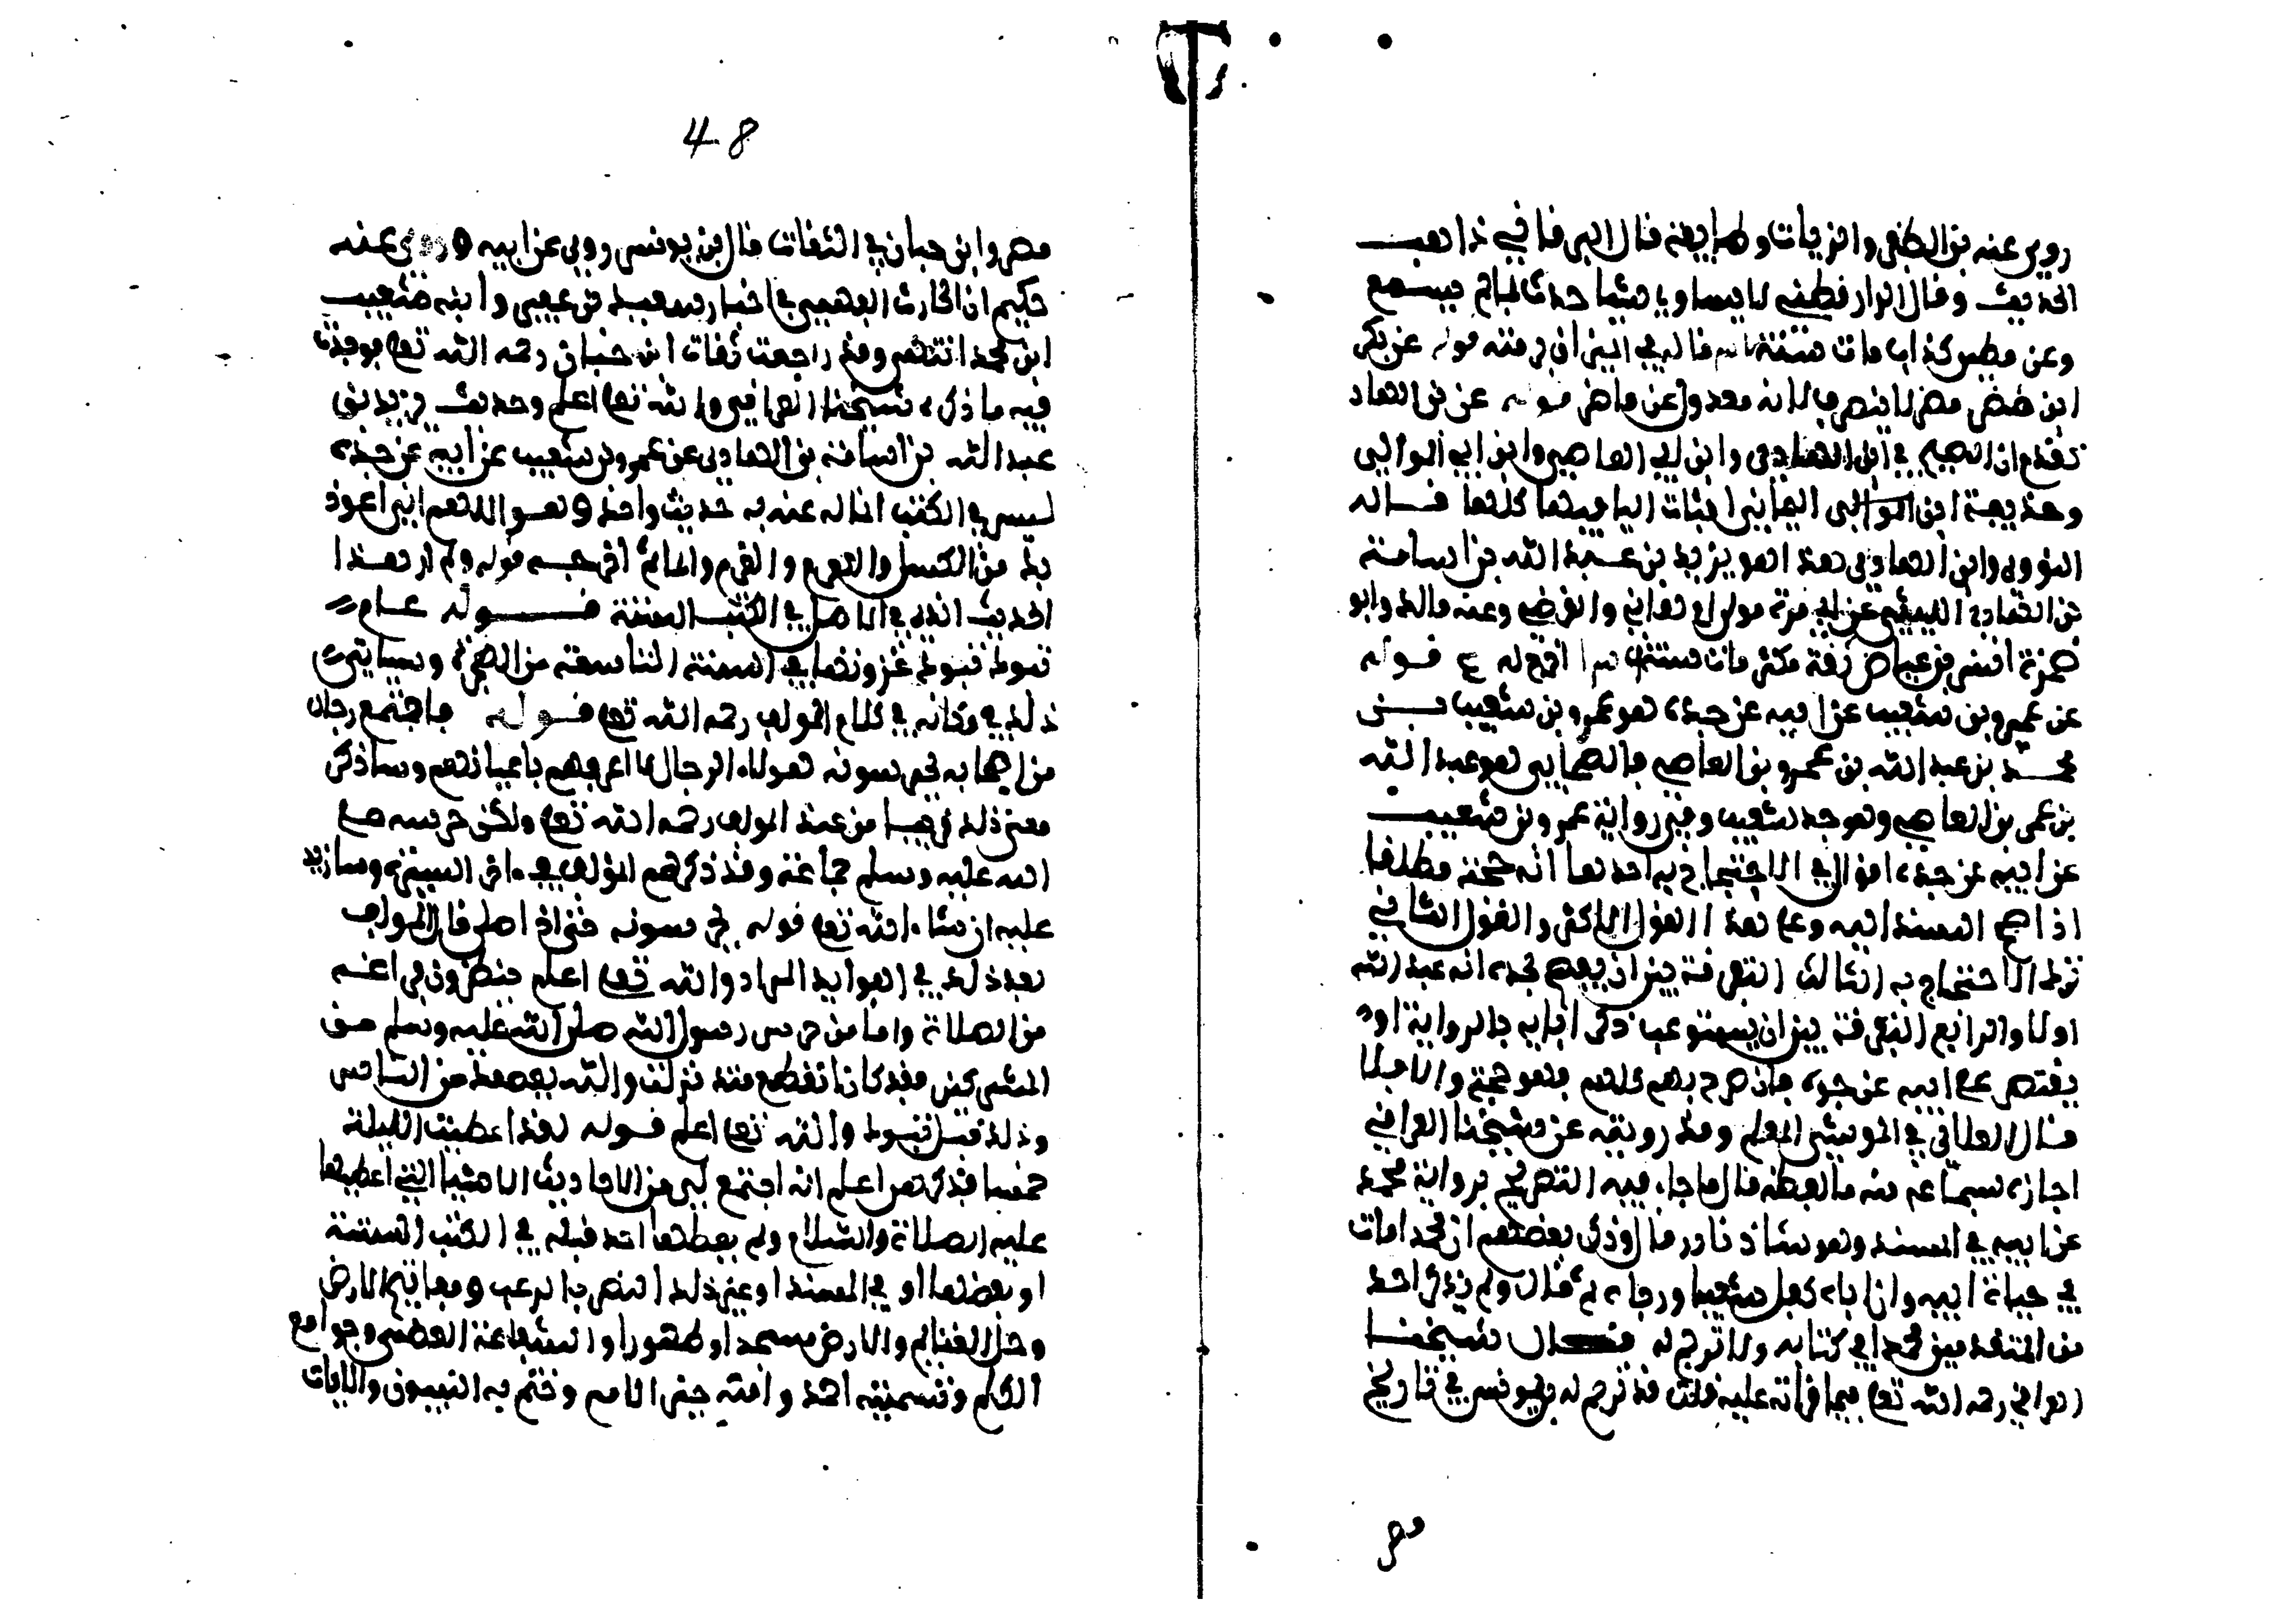 روى عنه بن المظفر والزيات وطايفة قال البرقاني ذاهب
الحديث وقال الدارقطني لا يساوي شيئا حدث بما لم يسمع
وعن مطين كذاب مات سنة قاله في الميزان قوله عن بكر
ابن مضر مضر لا ينصرف لانه معدول عن ماضر قوله عن بن الهاد
تقدم ان الصحيح في ابن الهادي وابن ابي العاصي وابن ابي الموالي
وحذيفة ابن اليماني اثبات اليا فيها كلها قاله
النووي وابن الهادي هذا هو يزيد بن عبد الله بن اسامة
بن الهادي الليثي عن ابي مرة مولى ام هاني والقرظي وعنه مالك وابو
ضمرة انس بن عياض ثقة مكثر مات سنة اخرج له ع قوله
عن عمرو بن شعيب عن ابيه عن جده هو عمرو بن شعيب بن
محمد بن عبد الله بن عمرو بن العاصي فالصحابي هو عبد الله
بن عمر بن العاصي وهو جد شعيب وفي رواية عمرو بن شعيب
عن ابيه عن جده اقوال في الاحتجاج به احدها انه حجة مطلقا
اذا صح السند اليه وعلى هذا القول الاكثر والقول الثاني
ترك الاحتجاج به الثالث التفرقة بين ان يفصح بجده انه عبد الله
اولا والرابع التفرقة بين ان يستوعب ذكر ابايه بالرواية او
يقتصر على ابيه عن جده فان صرح بهم كلهم فهو حجة والا فلا
قال العلائي في الوشي المعلم وقد رويته عن شيخنا العراقي
اجازة سماعه منه ما لفظه قال ما جاء فيه التصريح برواية محمد
عن ابيه في السند وهو شاذ نادر قال وذكر بعضهم ان محمدا مات
في حياة ابيه وان اباه كفل شعيبا ورباه ثم قال ولم يذكر احد
من المتقدمين محمدا في كتابه ولا ترجم له قال شيخنا
العراقي رحمه الله تعالى فيما قراته عليه قلت قد ترجم له بن يونس في تاريخ
مصر
48
مصر وابن حبان في الثقات قال بن يونس روى عن ابيه وروى عنه
حكيم ابن الحارث الفهمي في اخبار سعيد بن عفير وابنه شعيب
ابن محمد انتهى وقد راجعت ثقات ابن حبان رحمه الله تعالى فوجدت
فيه ما ذكره شيخنا العراقي والله تعالى اعلم وحديث يزيد بن
عبد الله بن اسامة بن الهادي عن عمرو بن شعيب عن ابيه عن جده
ليس في الكتب انما له عنه به حديث واحد وهو اللهم اني اعوذ
بك من الكسل والهرم والمغرم والماثم اخرجه قوله ولم ار هذا
الحديث الذي في الاصل في الكتب الستة قوله عام
تبوك تبوك غزوتها في السنة التاسعة من الهجرة وسياتي
ذلك في مكانه في كلام المولف رحمه الله تعالى قوله فاجتمع رجال
من اصحابه يحرسونه هولاء الرجال لا اعرفهم باعيانهم وساذكر
معنى ذلك قريبا من عند المولف رحمه الله تعالى ولكن حرسه صلى
الله عليه وسلم جماعة وقد ذكرهم المؤلف في اخر السيرة وسازيد
عليه ان شاء الله تعالى قوله يحرسونه حتى اذا صلى قال المولف
بعد ذلك في الفوايد المراد والله تعالى اعلم ينتظرون فراغه
من الصلاة واما من حرس رسول الله صلى الله عليه وسلم من
المشركين فقد كان انقطع منذ نزلت والله يعصمك من الناس
وذلك قبل تبوك والله تعالى اعلم قوله لقد اعطيت الليلة
خمسا فذكرهن اعلم انه اجتمع لي من الاحاديث الاشيا التي اعطيها
عليه الصلاة والسلام ولم يعطها احد قبله في الكتب الستة
او بعضها او في المسند او غير ذلك النصر بالرعب ومفاتيح الارض
وحل الغنايم والارض مسجدا وطهورا والشفاعة العظمى وجوامع
الكلم وتسميته احمد وامته خير الامم وختم به النبيون والايات